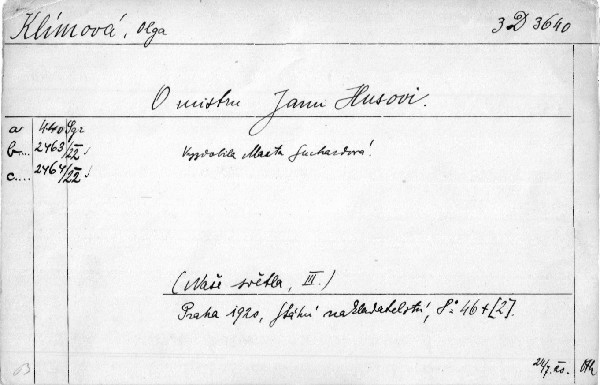 Klímová, Olga 3 D 3640
O mistru Janu Husovi.
a 440
b... 2463/22
c.... 2464/22
Vyzdobila Marta Suchardová.
(Naše světla, III.)
Praha 1920, Státní nakladatelství, 8° 46+[2].
24/7.